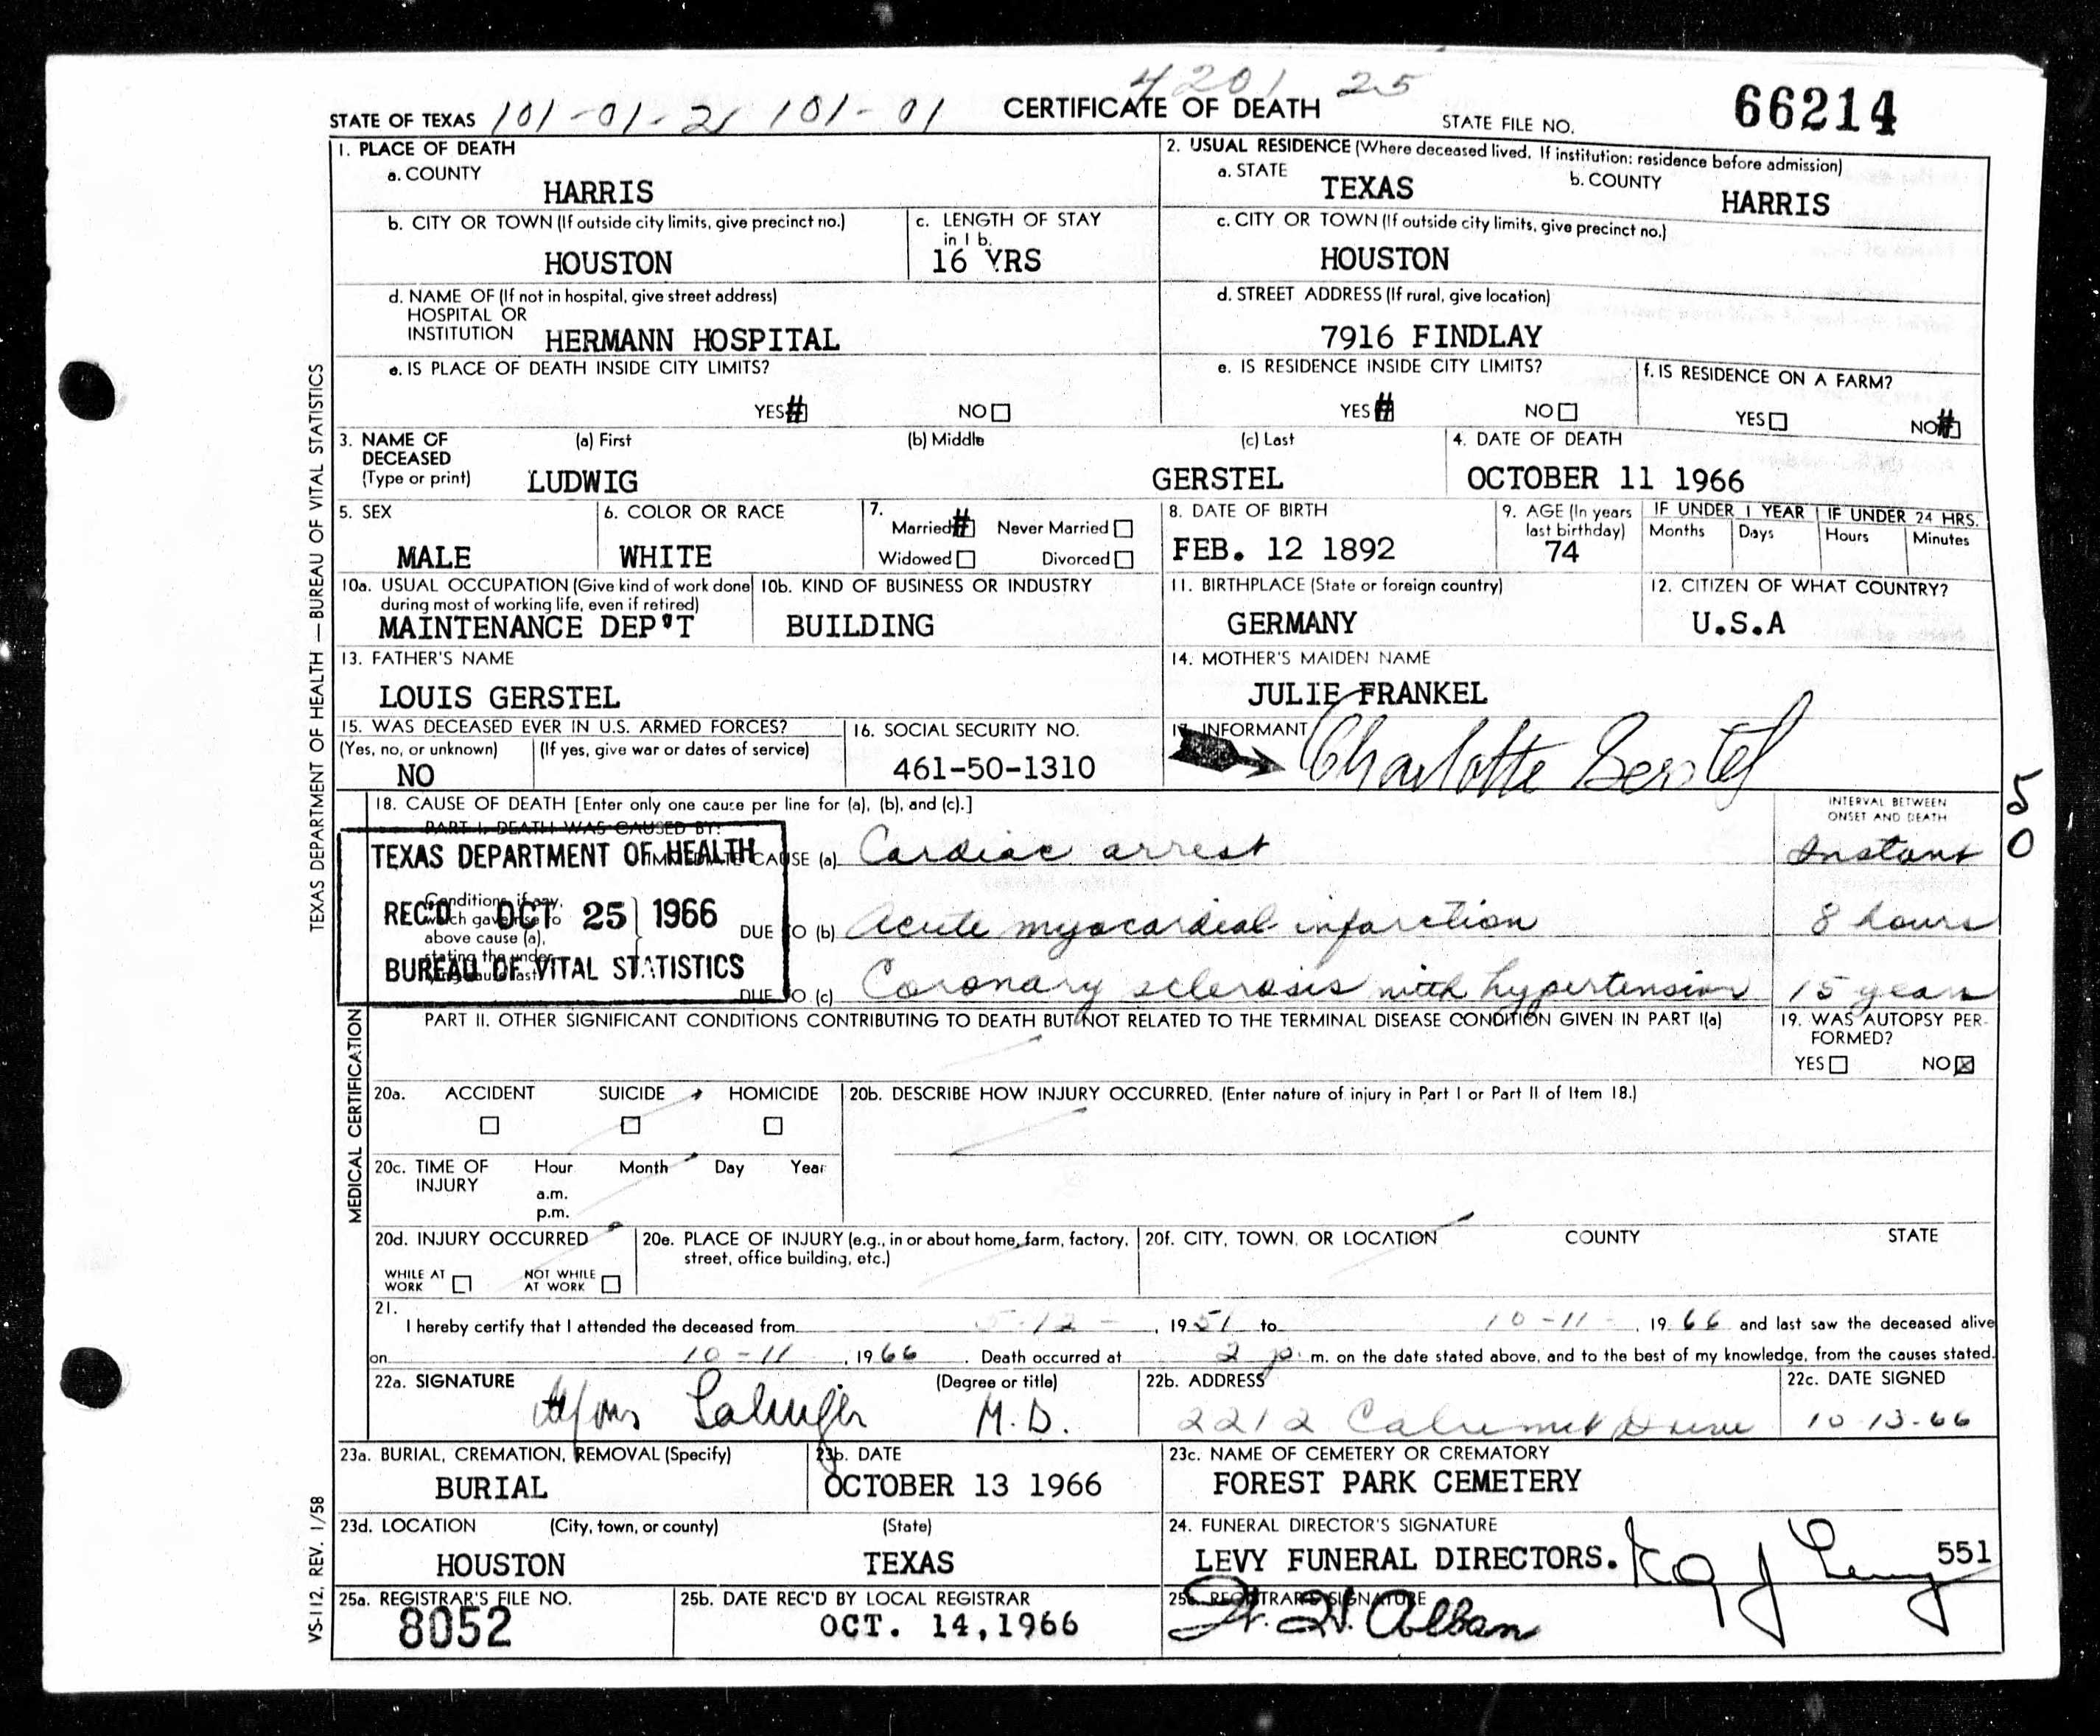 4201 25
STATE OF TEXAS 101-01-2 101-01 CERTIFICATE OF DEATH STATE FILE NO. 66214
1. PLACE OF DEATH
a. COUNTY
HARRIS
2. USUAL RESIDENCE (Where deceased lived. If institution: residence before admission)
a. STATE TEXAS b. COUNTY HARRIS
b. CITY OR TOWN (If outside city limits, give precinct no.)
HOUSTON
c. LENGTH OF STAY
in 1 b.
16 YRS
c. CITY OR TOWN (If outside city limits, give precinct no.)
HOUSTON
d. NAME OF (If not in hospital, give street address)
HOSPITAL OR
INSTITUTION HERMANN HOSPITAL
d. STREET ADDRESS (If rural, give location)
7916 FINDLAY
e. IS PLACE OF DEATH INSIDE CITY LIMITS?
YES # NO
e. IS RESIDENCE INSIDE CITY LIMITS?
YES # NO
f. IS RESIDENCE ON A FARM?
YES NO #
3. NAME OF
DECEASED
(Type or print)
(a) First (b) Middle (c) Last
LUDWIG GERSTEL
4. DATE OF DEATH
OCTOBER 11 1966
5. SEX
MALE
6. COLOR OR RACE
WHITE
7.
Married # Never Married
Widowed Divorced
8. DATE OF BIRTH
FEB. 12 1892
9. AGE (In years
last birthday)
74
IF UNDER 1 YEAR IF UNDER 24 HRS.
Months Days Hours Minutes
10a. USUAL OCCUPATION (Give kind of work done
during most of working life, even if retired)
MAINTENANCE DEP'T
10b. KIND OF BUSINESS OR INDUSTRY
BUILDING
11. BIRTHPLACE (State or foreign country)
GERMANY
12. CITIZEN OF WHAT COUNTRY?
U.S.A
13. FATHER'S NAME
LOUIS GERSTEL
14. MOTHER'S MAIDEN NAME
JULIE FRANKEL
15. WAS DECEASED EVER IN U.S. ARMED FORCES?
(Yes, no, or unknown) (If yes, give war or dates of service)
NO
16. SOCIAL SECURITY NO.
461-50-1310
17. INFORMANT
Charlotte Gerstel
50
18. CAUSE OF DEATH [Enter only one cause per line for (a), (b), and (c).]
INTERVAL BETWEEN
ONSET AND DEATH
PART I. DEATH WAS CAUSED BY:
IMMEDIATE CAUSE (a) Cardiac arrest Instant
Conditions, if any,
which gave rise to
above cause (a),
stating the under-
lying cause last.
DUE TO (b) Acute myocardial infarction 8 hours
DUE TO (c) Coronary sclerosis with hypertension 15 years
TEXAS DEPARTMENT OF HEALTH
REC'D OCT 25 1966
BUREAU OF VITAL STATISTICS
PART II. OTHER SIGNIFICANT CONDITIONS CONTRIBUTING TO DEATH BUT NOT RELATED TO THE TERMINAL DISEASE CONDITION GIVEN IN PART I(a)
19. WAS AUTOPSY PER-
FORMED?
YES NO X
20a. ACCIDENT SUICIDE HOMICIDE
20b. DESCRIBE HOW INJURY OCCURRED. (Enter nature of injury in Part I or Part II of Item 18.)
20c. TIME OF
INJURY
Hour Month Day Year
a.m.
p.m.
20d. INJURY OCCURRED
WHILE AT
WORK
NOT WHILE
AT WORK
20e. PLACE OF INJURY (e.g., in or about home, farm, factory,
street, office building, etc.)
20f. CITY, TOWN, OR LOCATION COUNTY STATE
21.
I hereby certify that I attended the deceased from 5-12-, 1951 to 10-11-, 1966 and last saw the deceased alive
on 10-11, 1966. Death occurred at 2 p. m. on the date stated above, and to the best of my knowledge, from the causes stated.
22a. SIGNATURE (Degree or title)
M.D.
22b. ADDRESS
2212 Calumet Drive
22c. DATE SIGNED
10-13-66
23a. BURIAL, CREMATION, REMOVAL (Specify)
BURIAL
23b. DATE
OCTOBER 13 1966
23c. NAME OF CEMETERY OR CREMATORY
FOREST PARK CEMETERY
23d. LOCATION (City, town, or county) (State)
HOUSTON TEXAS
24. FUNERAL DIRECTOR'S SIGNATURE
LEVY FUNERAL DIRECTORS. Levy 551
25a. REGISTRAR'S FILE NO.
8052
25b. DATE REC'D BY LOCAL REGISTRAR
OCT. 14,1966
25c. REGISTRAR'S SIGNATURE
Alban
TEXAS DEPARTMENT OF HEALTH — BUREAU OF VITAL STATISTICS
MEDICAL CERTIFICATION
VS-112, REV. 1/58